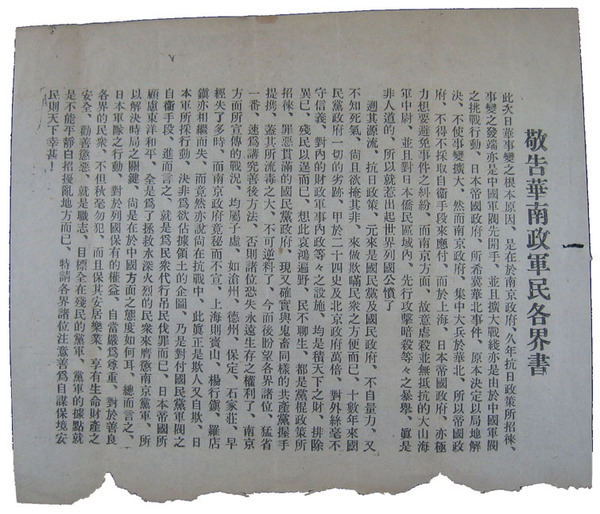 敬告華南政軍民各界書
此次日華事變之根本原因、是在於南京政府、久年抗日政策所招徠、
事變之發端亦是中國軍閥先開手、並且擴大戰綫亦是由於中國軍閥
之挑戰行動、日本帝國政府、所希冀華北事件、原本決定以局地解
決、不使事變擴大、然而南京政府、集中大兵於華北、所以帝國政
府、不得不採取自衛手段來應付、而於上海、日本帝國政府、亦極
力想要避免事件之糾紛、而南京方面、故意虐殺並無抵抗的大山海
軍中尉、並且對日本僑民區域內、先行攻擊暗殺等々之暴舉、眞是
非人道的、所以就惹出起世界列國公憤了
遡其源流、抗日政策、元來是國民黨及國民政府、不自量力、又
不知死氣、尙且欲掩其非、來做欺瞞民衆之方便而已、十數年來國
民黨政府一切的劣跡、甲於二十四史及北京政府萬倍、對外絲毫不
守信義、對內的財政軍事內政等々之設施、均是積天下之財、排除
異已、殘民以逞而已、想此哀鴻遍野、民不聊生、都是黨棍政策所
招徠、罪惡貫滿的國民黨政府、現又確實與鬼畜同樣的共產黨握手
提携、蓋其所流毒之大、不可逆料了、今而後盼望各界諸位、猛省
一番、速爲講究善後方法、否則諸位恐失永遠生存之權利了、南京
方面所宣傳的戰况、均屬子虛、如滄州、德州、保定、石家莊、早
經失了多時、而南京政府竟秘而不宣、上海則寶山、楊行鎭、羅店
鎭亦相繼而失、而竟然亦說尙在抗戰中、此眞正是欺人又自欺、日
本軍所採行動、決非爲欲佔據領土的企圖、乃是對付國民黨軍閥之
自衛手段、進而言之、就是爲民衆代行吊民伐罪而已、日本帝國所
顧慮東洋和平、全是爲了拯救水深火烈的民衆來膺懲南京黨軍、所
以解決時局之關鍵、尙是在於中國方面之態度如何耳、總而言之、
日本軍歐之行動、對於列國保有的權益、自當嚴爲尊重、對於善良
各界的民衆、不但秋毫勿犯、而且保其安居樂業、享有生命財產之
安全、勸善懲惡、就是職志、目標全在殘民的黨軍、黨軍的據點就
是不能平靜白招擾亂地方而已、特請各界諸位注意善爲自謀保境安
民則天下幸甚！